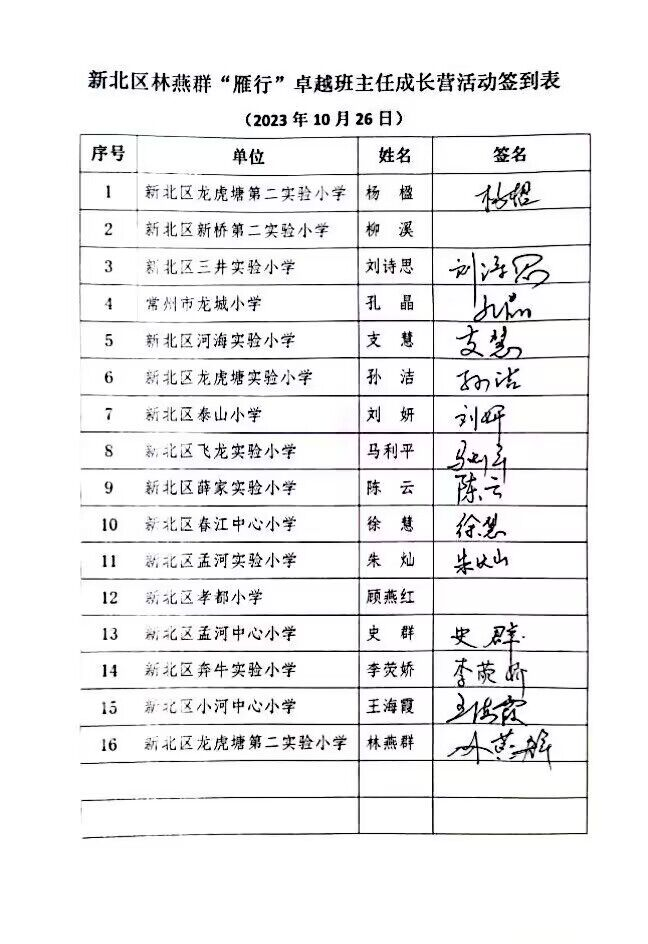 新北区林燕群“雁行”卓越班主任成长营活动签到表
（2023 年 10 月 26 日）
序号 单位 姓名 签名
1 新北区龙虎塘第二实验小学 杨 楹 杨楹
2 新北区新桥第二实验小学 柳 溪
3 新北区三井实验小学 刘诗思 刘诗思
4 常州市龙城小学 孔 晶 孔晶
5 新北区河海实验小学 支 慧 支慧
6 新北区龙虎塘实验小学 孙 洁 孙洁
7 新北区泰山小学 刘 妍 刘妍
8 新北区飞龙实验小学 马利平 马利平
9 新北区薛家实验小学 陈 云 陈云
10 新北区春江中心小学 徐 慧 徐慧
11 新北区孟河实验小学 朱 灿 朱灿
12 新北区孝都小学 顾燕红
13 新北区孟河中心小学 史 群 史群
14 新北区奔牛实验小学 李荧娇 李荧娇
15 新北区小河中心小学 王海霞 王海霞
16 新北区龙虎塘第二实验小学 林燕群 林燕群